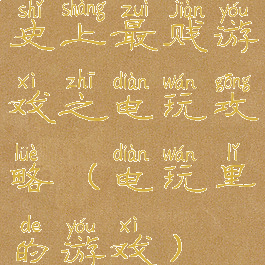 shǐ shàng zuì jiàn yóu
史上最贱游
xì zhī diàn wán gōng
戏之电玩攻
lüè diàn wán lǐ
略（电玩里
de yóu xì
的游戏）